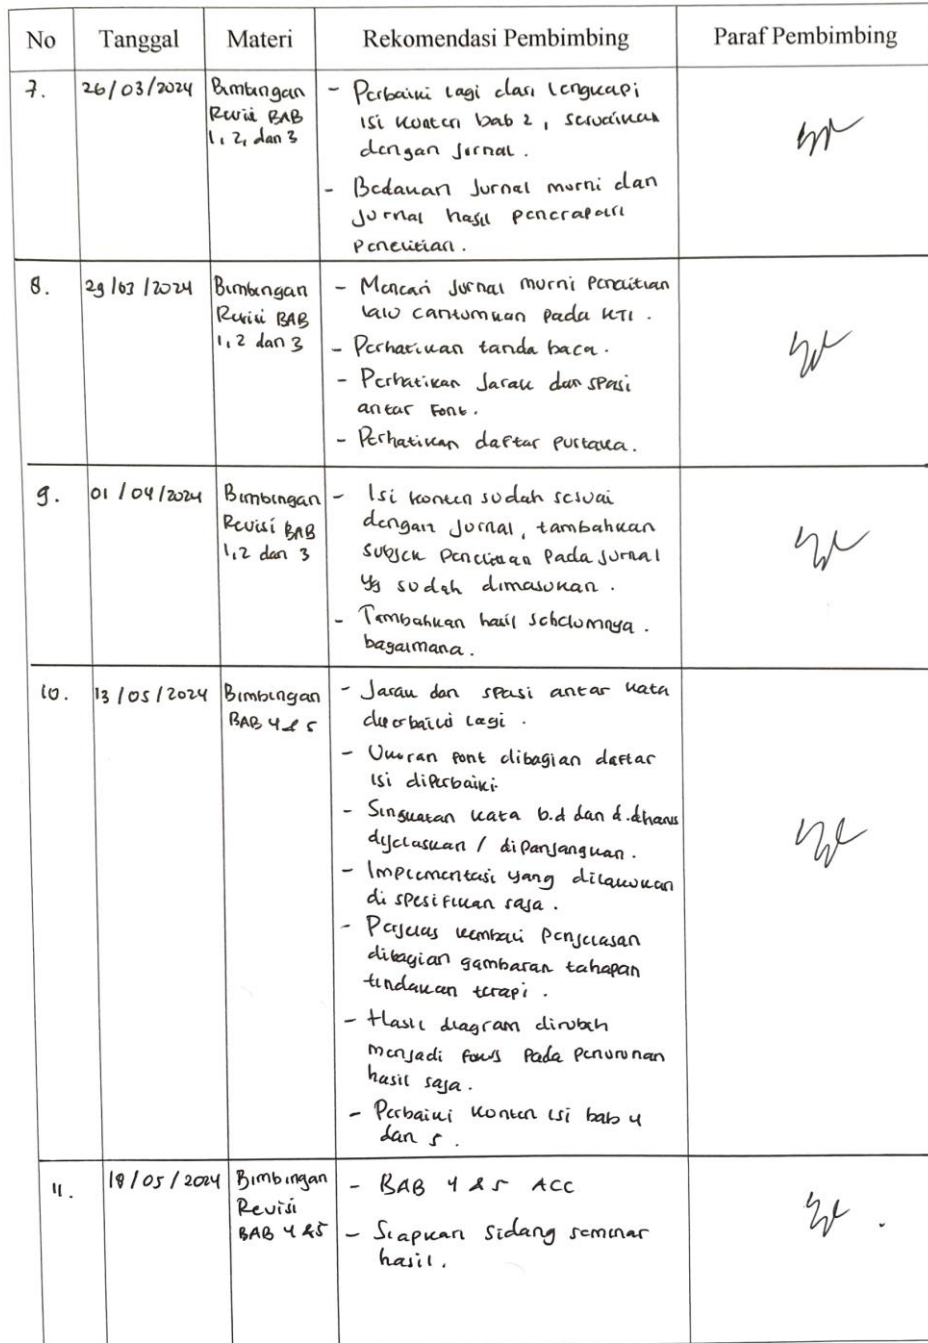 No Tanggal Materi Rekomendasi Pembimbing Paraf Pembimbing
7. 26/03/2024 Bimbingan Revisi BAB 1, 2, dan 3
- Perbaiki lagi dan lengkapi
isi konten bab 2, sesuaikan
dengan jurnal.
- Bedakan jurnal murni dan
jurnal hasil penerapan
penelitian.
8. 29/03/2024 Bimbingan Revisi BAB 1, 2 dan 3
- Mencari jurnal murni penelitian
lalu cantumkan pada KTI.
- Perhatikan tanda baca.
- Perhatikan Jarak dan spasi
antar Font.
- Perhatikan daftar pustaka.
9. 01/04/2024 Bimbingan Revisi BAB 1,2 dan 3
- Isi konten sudah sesuai
dengan Jurnal, tambahkan
subjek penelitian pada jurnal
yg sudah dimasukan.
- Tambahkan hasil sebelumnya.
bagaimana.
10. 13/05/2024 Bimbingan BAB 4 & 5
- Jarak dan spasi antar kata
diperbaiki lagi.
- Ukuran font dibagian daftar
isi diperbaiki.
- Singkatan kata b.d dan d.d harus
dijelaskan / dipanjangkan.
- Implementasi yang dilakukan
di spesifikan saja.
- Perjelas kembali penjelasan
dibagian gambaran tahapan
tindakan terapi.
- Hasil diagram dirubah
menjadi fokus pada penurunan
hasil saja.
- Perbaiki konten isi bab 4
dan 5.
11. 18/05/2024 Bimbingan Revisi BAB 4 & 5
- BAB 4 & 5 ACC
- Siapkan Sidang seminar
hasil.